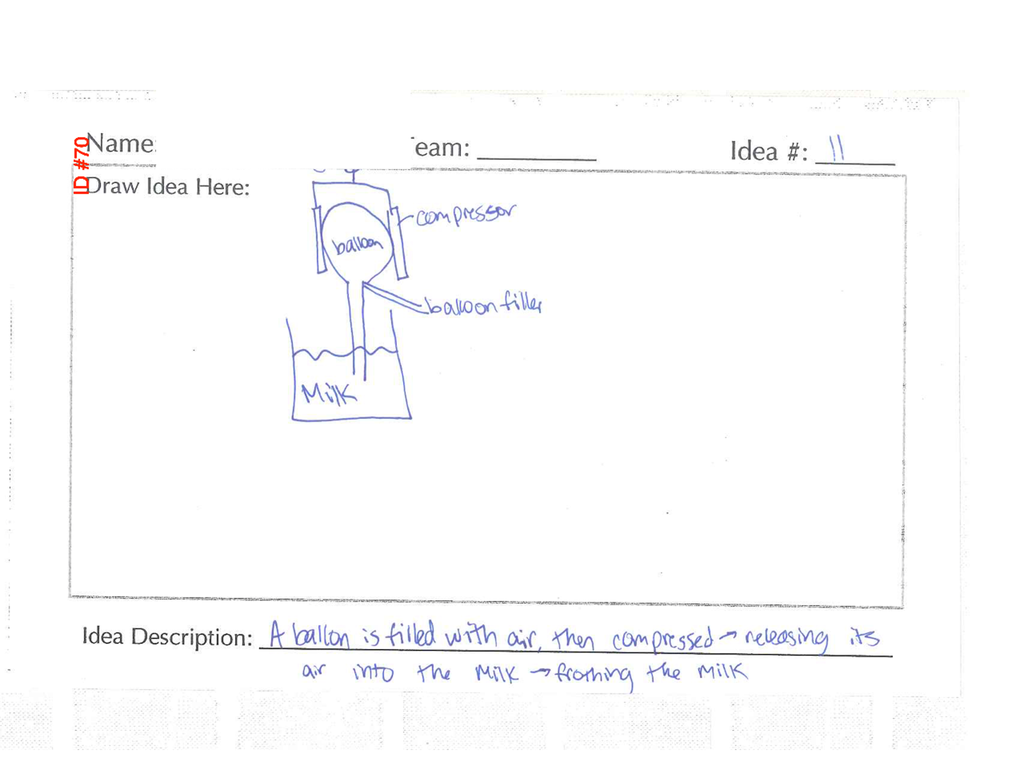 ID #70
Name:
eam:
Idea #: 11
Draw Idea Here:
compressor
balloon
balloon filler
Milk
Idea Description: A ballon is filled with air, then compressed → releasing its
air into the Milk → frothing the Milk